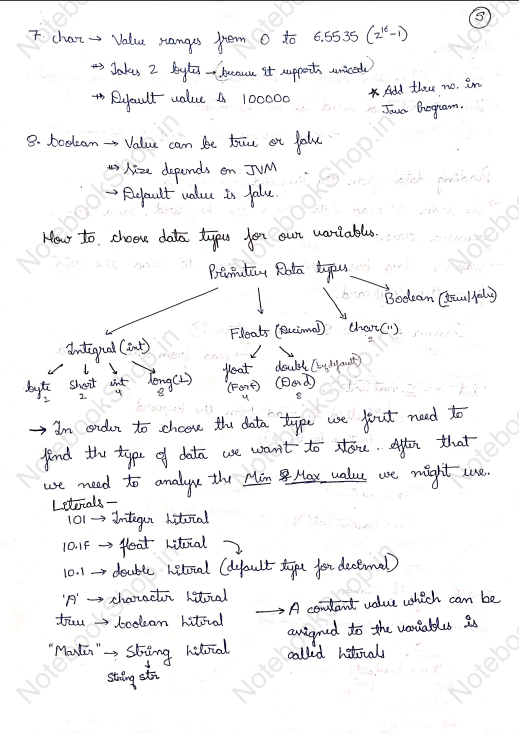 5
7. char → Value ranges from 0 to 6,5535 (2^16-1)
→ Takes 2 bytes → (because it supports unicode)
→ Default value is 100000
* Add three no. in
Java Program.
8. boolean → Value can be true or false
→ Size depends on JVM
→ Default value is false.
How to choose data types for our variables.
Primitive Data types
Integral (int)
Floats (Decimal)
Char('')
2
Boolean (true/false)
byte
1
short
2
int
4
long(L)
8
float
(F or f)
4
double (by default)
(D or d)
8
→ In order to choose the data type we first need to
find the type of data we want to store. After that
we need to analyse the Min & Max value we might use.
Literals —
101 → Integer literal
10.1F → float literal
10.1 → double literal (default type for decimal)
'A' → character literal
true → boolean literal
"Master" → String literal
String str
→ A constant value which can be
assigned to the variables is
called literals
NotebookShop.in